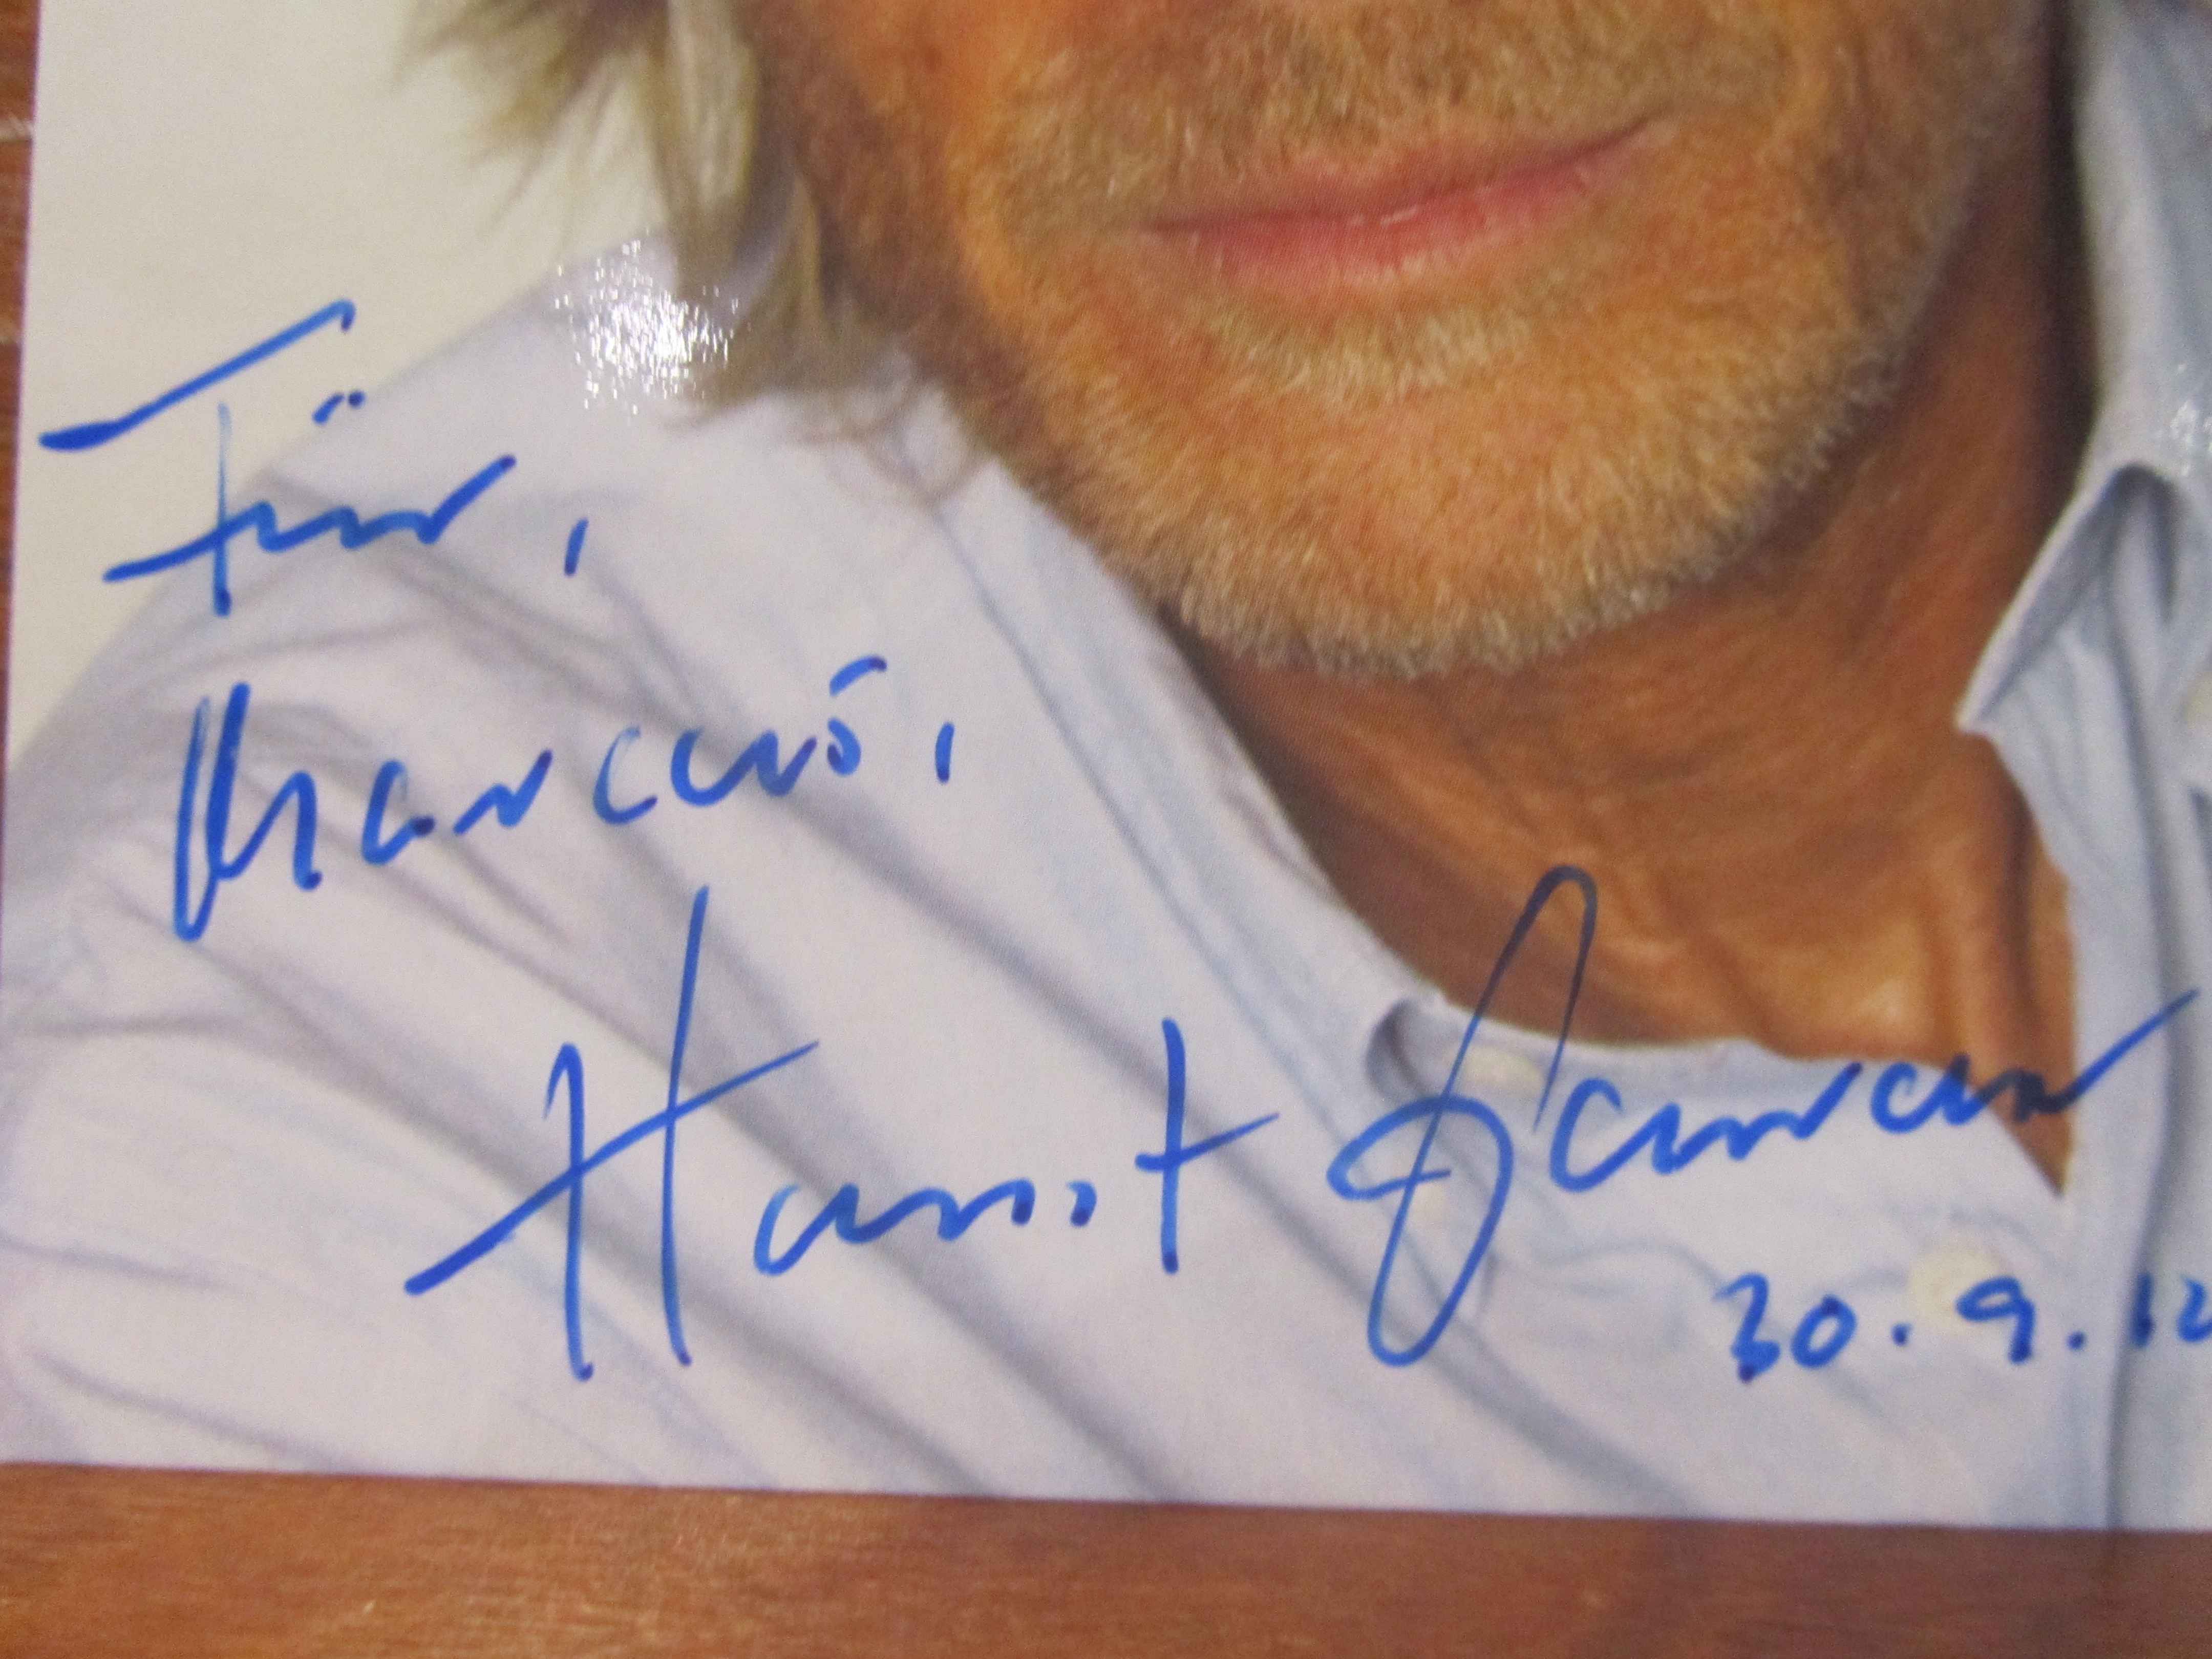 Für,
Marcus,
Horst Janson
30.9.12